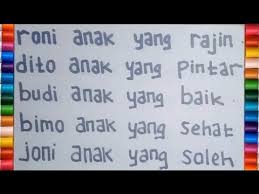 roni anak yang rajin
dito anak yang pintar
budi anak yang baik
bimo anak yang sehat
joni anak yang soleh